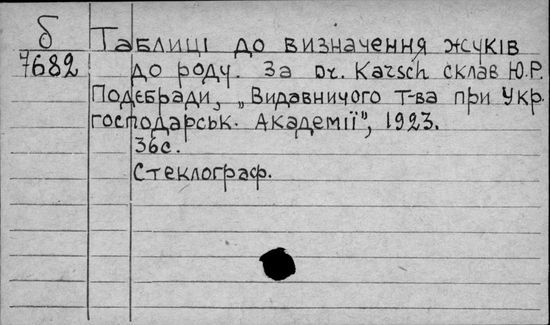 б
7682
Таблиці до визначення жуків
до роду. За Dr. Karsch склав Ю.Р.
Подєбради, „Видавничого т-ва при Укр.
господарськ. Академії", 1923.
36с.
Стеклограф.